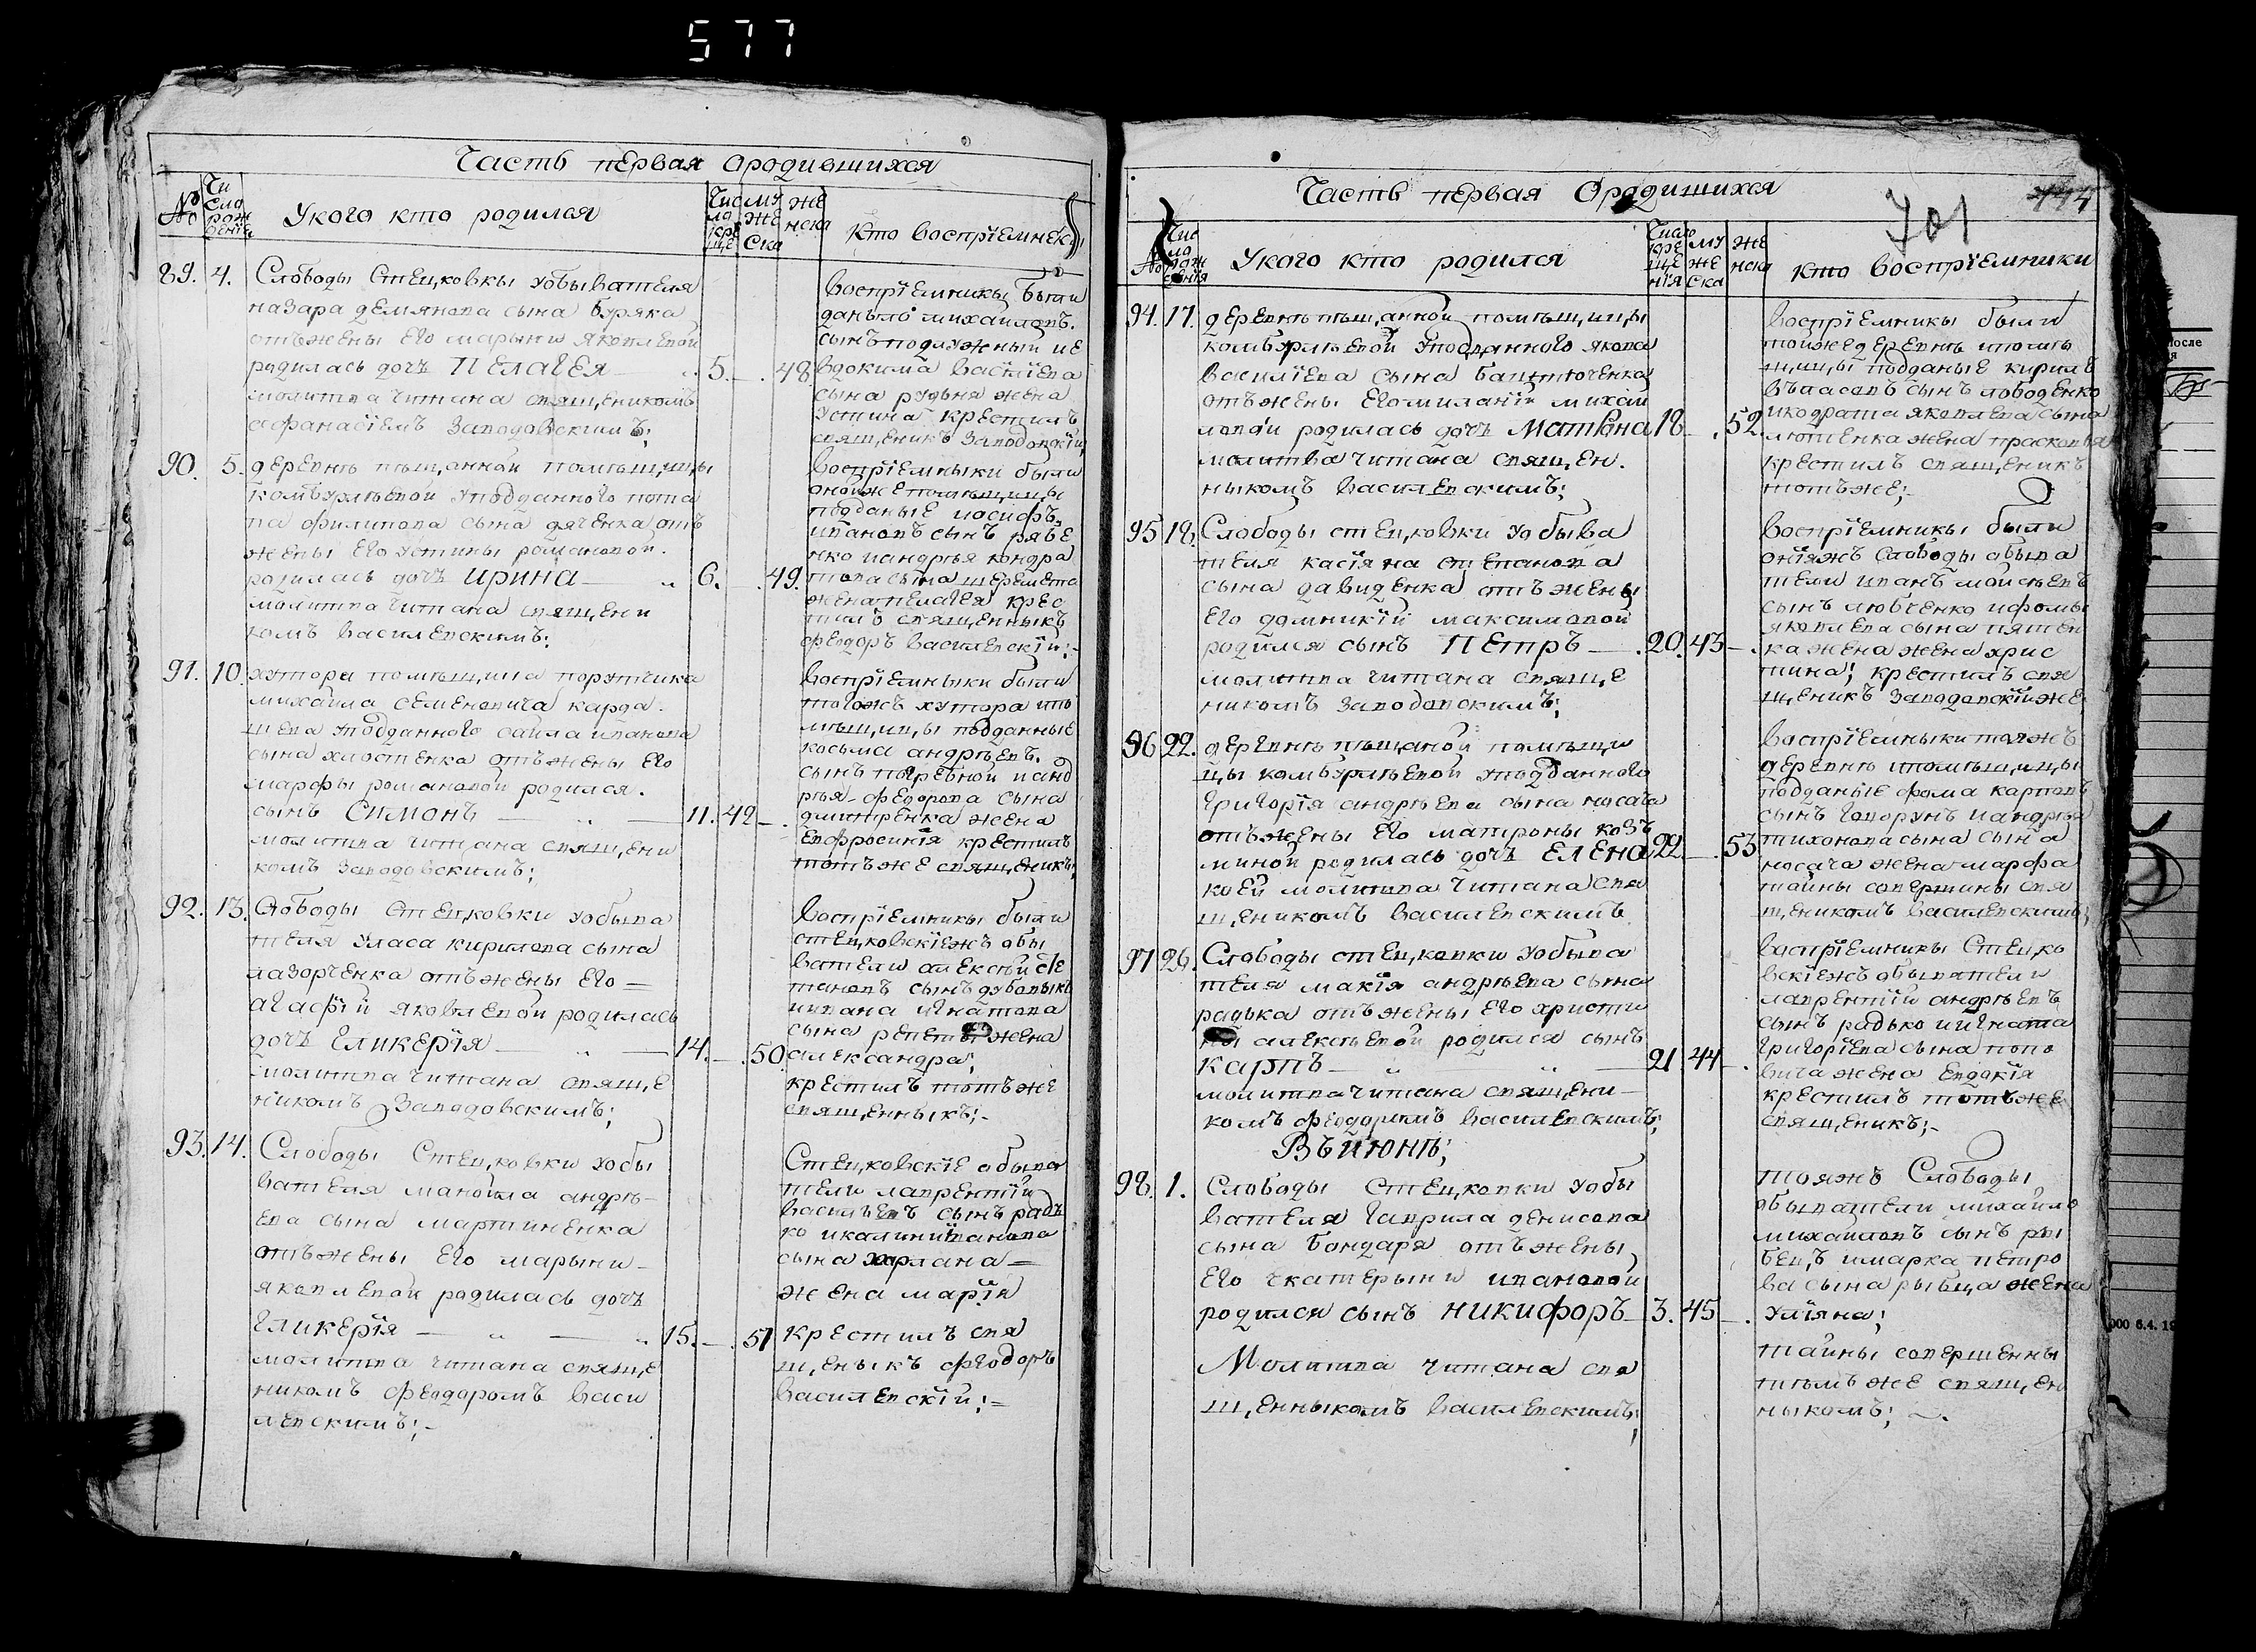 577
Часть первая ородившихся
№
Чи
сло
рож
дения
Укого кто родился
Чис
ла
кре
ще
му
же
ска
же
нска
Кто воспрїемники
89. 4. Слободы Стецковки уобывателя
назара демянова сына буряка
отъ жены его марыни яковлевой
родилась дочъ Пелагея 5. — 48
молитва читана священикомъ
афанасїемъ Заводовскимъ;
воспрїемники были
данъло михайловъ.
сынъ подлужный ие
вдокима василїева
сына рудыя жена
устина крестилъ
священикъ Заводовскїй
90. 5. деревнѣ пѣщанной помѣщицы
комбурлѣевой уподданного пота
па филипова сына дяченка отъ
жены его устины романовой.
родилась дочъ ирина — 6. — 49.
молитва читана священи
комъ василевскимъ;
воспрїемники были
онойже помѣщицы
подданые иосифъ
ивановъ сынъ рябе
нко иандрѣя кондра
това сына шеремета
жена пелагея крес
тилъ священныкъ
феодоръ василевскїй;-
91. 10. хутора помѣщика порутчика
михайла семеновича карда.
шева уподданного савла иванова
сына хлостенка отъ жены его
марфы романовой родился.
сынъ Симонъ — 11. 42 —.
молитва читана священи
комъ Заводовскимъ;
воспрїемныки были
тогожъ хутора ипо
мѣщицы подданные
косьма андрѣевъ.
сынъ погребной ианд
рѣя федорова сына
дмитренка жена
евфросинїя крестилъ
тотъ же священикъ;
92. 13. Слободы Стецковки уобыва
теля Уласа кирилова сына
лазорченка отъ жены его —
агафїи яковлевой родилась
дочъ Гликерїя — 14. — .50
молитва читана свяще
никомъ Заводовскимъ;
воспрїемники были
стецковскїежъ обы
ватели алексѣй сте
пановъ сынъ дубовыкъ
иивана игнатова
сына жена
александра;
крестилъ тотъ же
священныкъ;-
93. 14. Слободы Стецковки уобы
вателя манойла андрѣ-
ева сына мартиненка
отъ жены его марыни-
яковлевой родилась дочъ
Гликерїя — 15. — .51
молитва читана свяще
никомъ феодоромъ васи
левскимъ;-
Стецковскїе обыва
тели лаврентїй
василъевъ сынъ радъ
ко икалини иванова
сына харлана —
жена марїя
крестилъ свя
щеныкъ феодоръ
василевскїй;=
Часть первая Ородишихся
701
444
№
Чис
ло
рож
денїя
Укого кто родился
Число
кре
ще
нїя
му
же
ска
же
нска
кто воспрїемники
94. 17. деревнѣ пѣщанной помѣщицы
комбурлѣевой уподданного якова
василїева сына
отъ жены его миланїи михаи
ловой родилась дочъ Матрона 18 — .52.
молитва читана священ.
ныкомъ василевскимъ;
воспрїемникы были
тойже деревнѣ ипомѣ
щицы подданые кирилъ
власовъ сынъ лободенко
икодрата яковлева сына
лютенка жена прасковъя
крестилъ священикъ
тотъже;-
95 18. Слободы стецковки уобыва
теля касїяна степанова
сына давиденка отъ жены
его домникїи максимовой
родился сынъ Петръ — .20. 43 — .
молитва читана свяще
никомъ Заводовскимъ;
воспрїемникы были
онїяжъ слободы обыва
тели иванъ мойсѣевъ
сынъ любченко ифомы
яковлева сына пятен
ка жена жена хрис
тина; крестилъ свя
щеникъ Заводовскїйже
96 22. деревнѣ пѣщаной помѣщи
цы комбурлѣевой уподданного
григорїя андрѣева сына носача
отъ жены его матроны козъ
миной родилась дочъ Елена 22 — .53
коей молитва читана свя
щеникомъ василевскимъ
воспрїемныки тояжъ
деревнѣ ипомѣщицы
подданые фома карповъ
сынъ говорунъ иандрѣя
тихонова сына сына
носача жена марфа
тайны совершины свя
щеникомъ василевскимъ;
97 26. Слободы стецковки уобыва
теля макїя андрѣева сына
радька отъ жены его христи
ны алексѣевой родился сынъ
карпъ — 21 44 — .
молитва читана священи-
комъ феодоромъ василевскимъ;
воспрїемникы Стецко
вскїежъ обыватели
лаврентїй андрѣевъ
сынъ радько иигната
григорїева сына попо
вича жена евдокїя
крестилъ тотъже
священикъ;-
Въ июнѣ;
98. 1. Слободы Стецковки уобы
вателя гаврила денисова
сына бондаря отъ жены
его екатерыны ивановой
родился сынъ никифоръ 3. 45 — .
Молитва читана свя
щенныкомъ василевскимъ;
тояжъ Слободы
обыватели михайло
михайловъ сынъ ры
бецъ имарка петро
ва сына рыбца жена
улїяна;
тайны совершенны
тѣмъ же священ
ныкомъ;